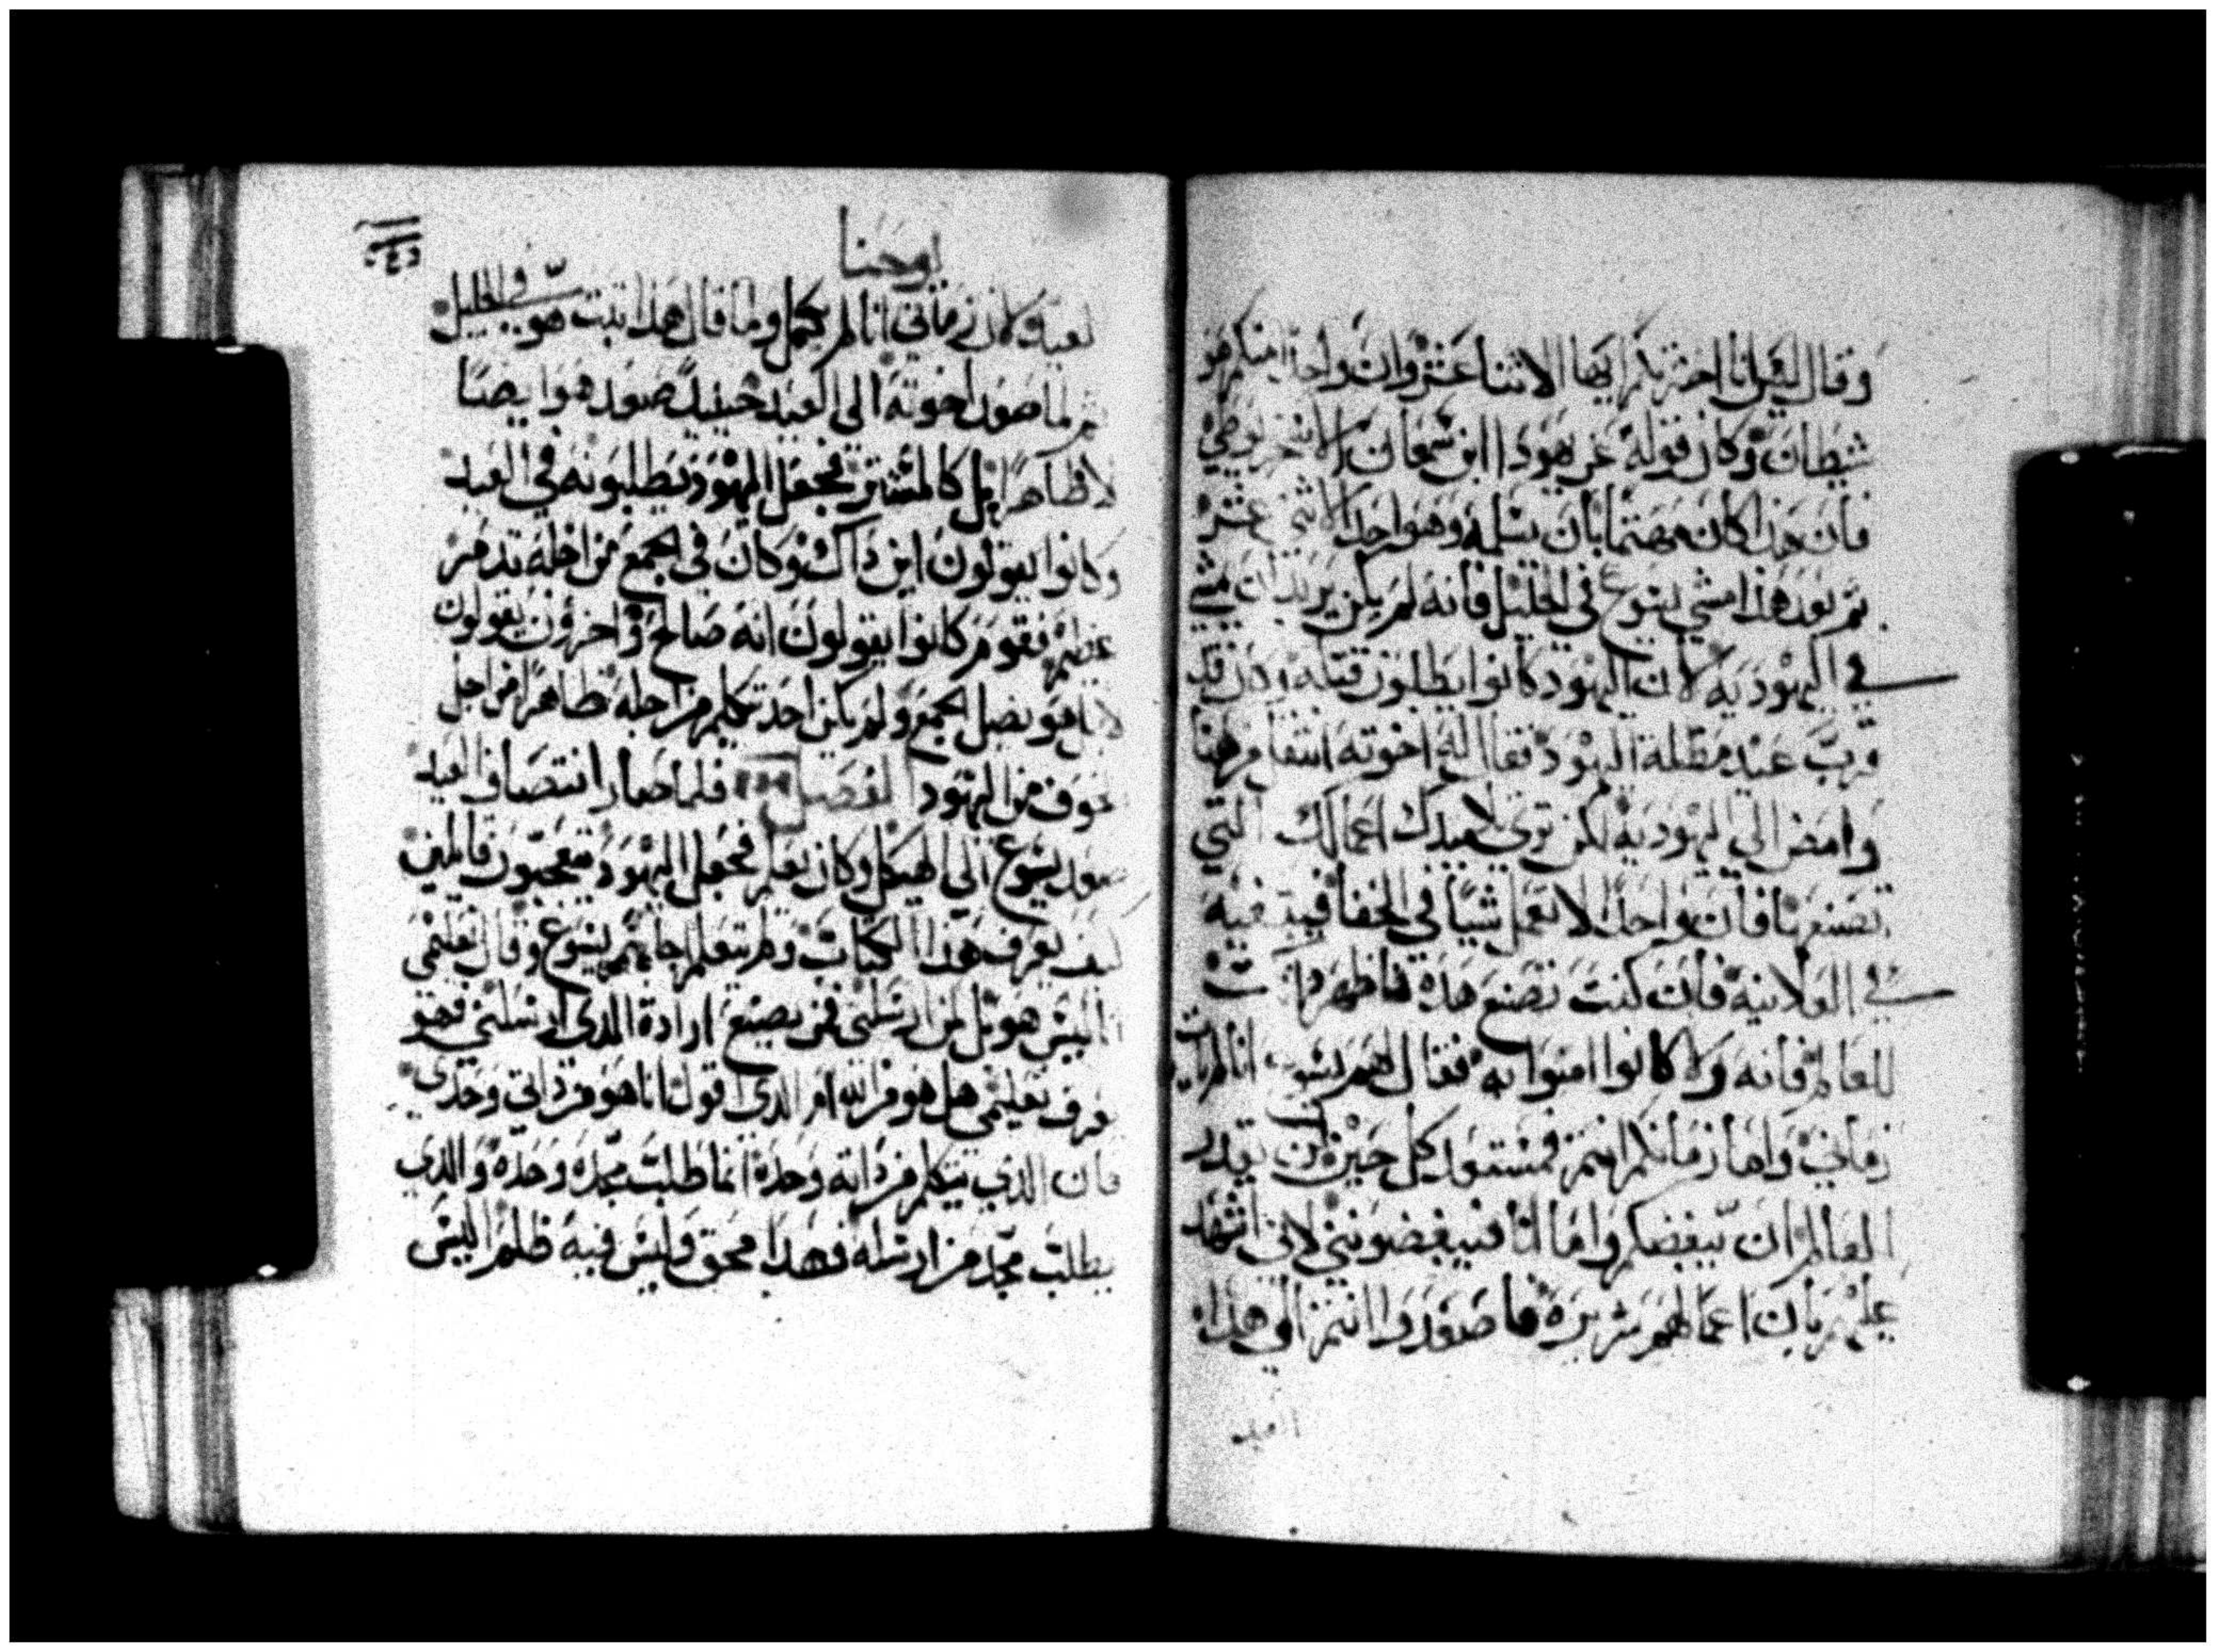 وقال ليس انا اخترتكم ايها الاثنا عشر وان واحدا منكم هو
شيطان وكان قوله عن يهودا ابن شمعان الاسخريوطي
فان هذا كان مهتما بان يسلمه وهو احد الاثني عشر
ثم بعد هذا مشي يسوع في الجليل فانه لم يكن يريد ان يمشي
في اليهوديه لان اليهود كانوا يطلبون قتله وكان قد
قرب عيد مظلة اليهود فقال له اخوته انتقل من هنا
وامض الي اليهوديه لكن تري تلاميدك اعمالك التي
تصنعها فان واحدا لا يعمل شيا في الخفا فيبتغيه
في العلانيه فان كنت تصنع هده فاظهر داتك
للعالم فانه ولا كانوا امنوا به فقال لهم يسوع انا لم يات
زماني واما زمانكم انتم فمستعد كل حين لن يقدر
العالم ان يبغضكم واما انا فيبغضونني لاني اشهد
عليهم بان اعمالهم شريره فاصعدوا انتم الي هدا
العيد
يوحنا
لعيد لان زماني انا لم يكمل ولما قال هذا ثبت هو في الجليل
ثم لما صعد اخوته الى العيد حينيد صعد هو ايضا
لا ظاهرا بل كالمستتر فجعل اليهود يطلبونه في العيد
وكانوا يقولون اين داك وكان في الجمع من اجله تدمر
عظيم فقوم كانوا يقولون انه صالح واخرون يقولون
لا بل هو يضل الجمع ولم يكن احد تكلم من اجله ظاهرا من اجل
خوف من اليهود الفصل فلما صار انتصاف العيد
صعد يسوع الي الهيكل وكان يعلم فجعل اليهود يتعجبون قايلين
كيف يعرف هذا الكتاب ولم يتعلم اجابهم يسوع وقال تعليمي
انا ليس هو بل لمن ارسلني فمن يصنع ارادة الدي ارسلني فهو
يعرف تعليمي هل هو من الله ام الدي اقول انا هو من داتي وحدي
فان الدي يتكلم من داته وحده انما طلب مجده وحده والدي
يطلب مجد من ارسله فهدا محق وليس فيه ظلم اليس